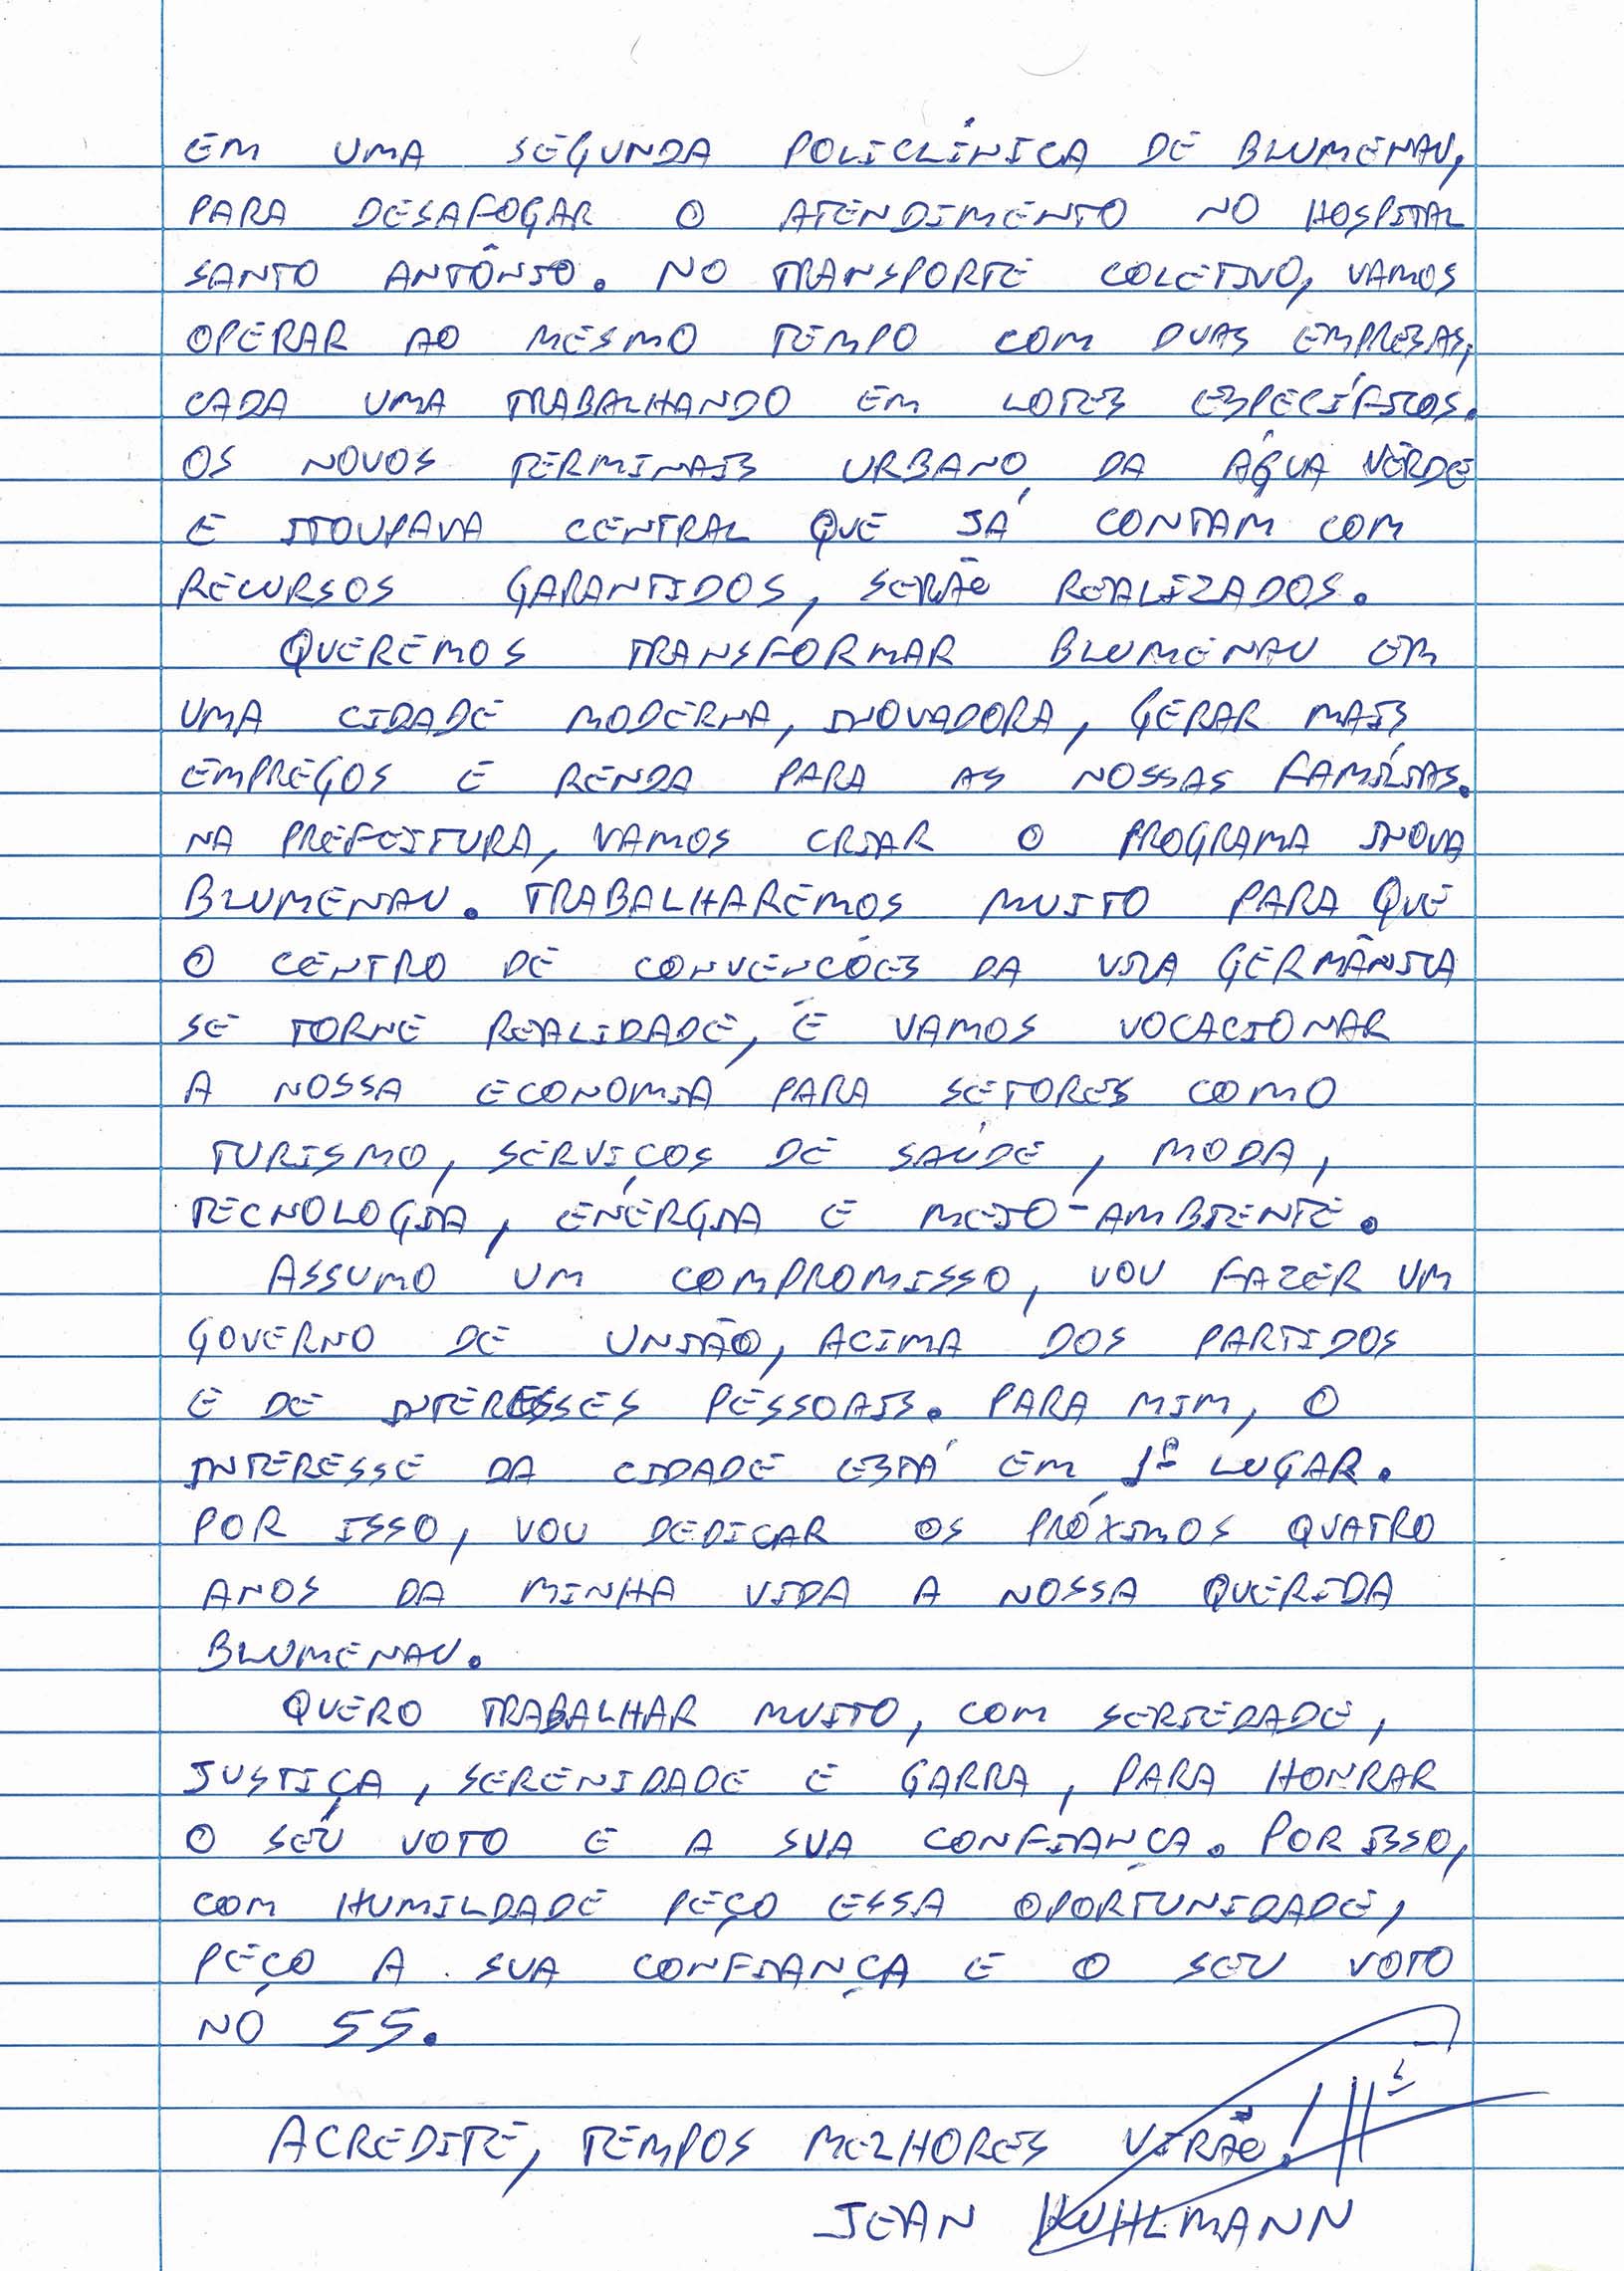 EM UMA SEGUNDA POLICLÍNICA DE BLUMENAU,
PARA DESAFOGAR O ATENDIMENTO NO HOSPITAL
SANTO ANTÔNIO. NO TRANSPORTE COLETIVO, VAMOS
OPERAR AO MESMO TEMPO COM DUAS EMPRESAS,
CADA UMA TRABALHANDO EM LOTES ESPECÍFICOS.
OS NOVOS TERMINAIS URBANO DA ÁGUA VERDE
E ITOUPAVA CENTRAL QUE JÁ CONTAM COM
RECURSOS GARANTIDOS, SERÃO REALIZADOS.
QUEREMOS TRANSFORMAR BLUMENAU EM
UMA CIDADE MODERNA, INOVADORA, GERAR MAIS
EMPREGOS E RENDA PARA AS NOSSAS FAMÍLIAS.
NA PREFEITURA, VAMOS CRIAR O PROGRAMA INOVA
BLUMENAU. TRABALHAREMOS MUITO PARA QUE
O CENTRO DE CONVENCÕES DA VILA GERMÂNIA
SE TORNE REALIDADE, E VAMOS VOCACIONAR
A NOSSA ECONOMIA PARA SETORES COMO
TURISMO, SERVIÇOS DE SAÚDE, MODA,
TECNOLOGIA, ENERGIA E MEIO-AMBIENTE.
ASSUMO UM COMPROMISSO, VOU FAZER UM
GOVERNO DE UNIÃO, ACIMA DOS PARTIDOS
E DE INTERESSES PESSOAIS. PARA MIM, O
INTERESSE DA CIDADE ESTÁ EM 1º LUGAR.
POR ISSO, VOU DEDICAR OS PRÓXIMOS QUATRO
ANOS DA MINHA VIDA A NOSSA QUERIDA
BLUMENAU.
QUERO TRABALHAR MUITO, COM SERIEDADE,
JUSTIÇA, SERENIDADE E GARRA, PARA HONRAR
O SEU VOTO E A SUA CONFIANÇA. POR ISSO,
COM HUMILDADE PEÇO ESSA OPORTUNIDADE,
PEÇO A SUA CONFIANÇA E O SEU VOTO
NO 55.
ACREDITE, TEMPOS MELHORES VIRÃO!
JEAN KUHLMANN